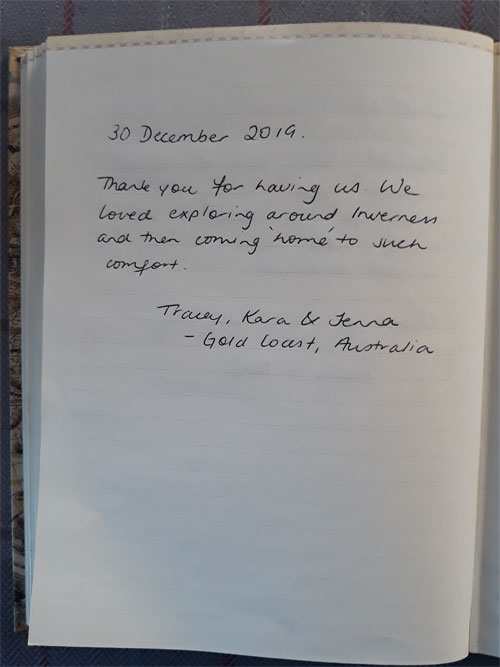 30 December 2019.
Thank you for having us. We
loved exploring around Inverness
and then coming 'home' to such
comfort.
Tracey, Kara & Jenna
- Gold Coast, Australia